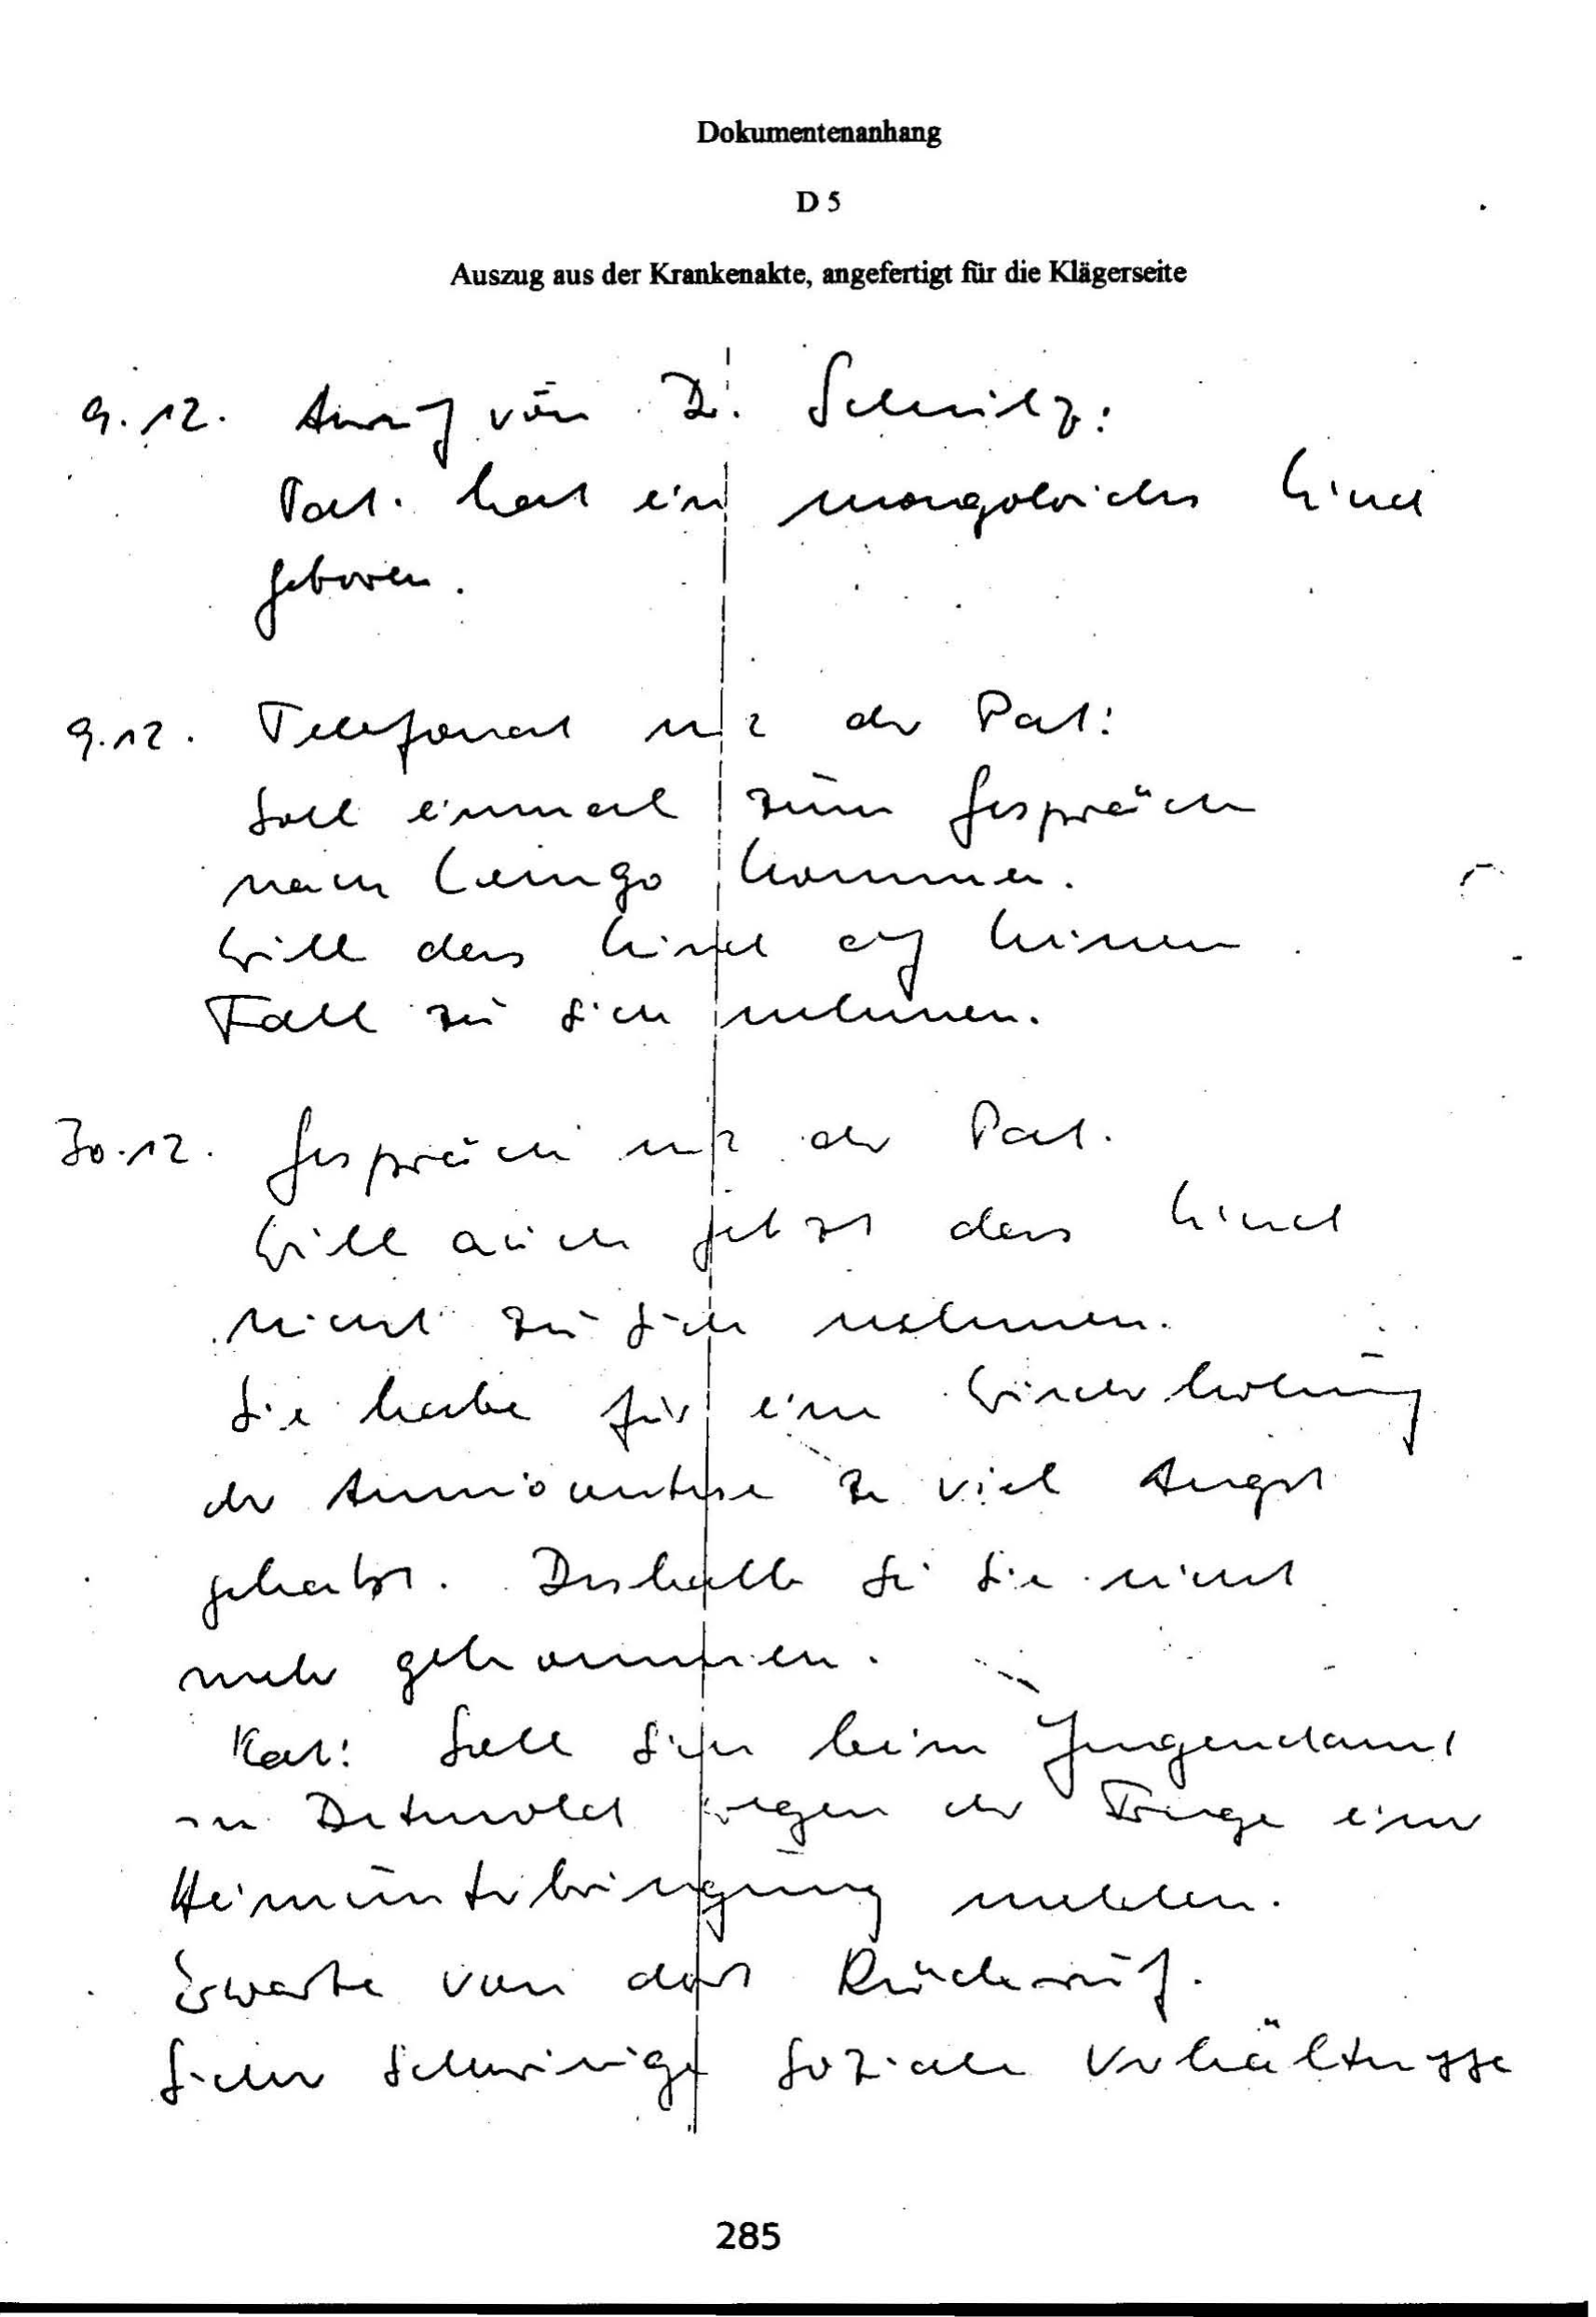 Dokumentenanhang
D 5
Auszug aus der Krankenakte, angefertigt für die Klägerseite
9.12. Anruf von Dr. Schmilz:
Pat. hat ein mongoloides Kind
geboren.
9.12. Telefonat mit der Pat:
Soll einmal zum Gespräch
nach Lemgo kommen.
Will das Kind auf keinen
Fall zu sich nehmen.
30.12. Gespräch mit der Pat.
Will auch jetzt das Kind
nicht zu sich nehmen.
Sie habe für eine Wiederholung
der Amniocentese zu viel Angst
gehabt. Deshalb sei sie nicht
mehr gekommen.
Rat: Soll sich beim Jugendamt
in Detmold wegen der Frage einer
Heimunterbringung melden.
Erwarte von dort Rückruf.
Sicher schwierige soziale Verhältnisse
285